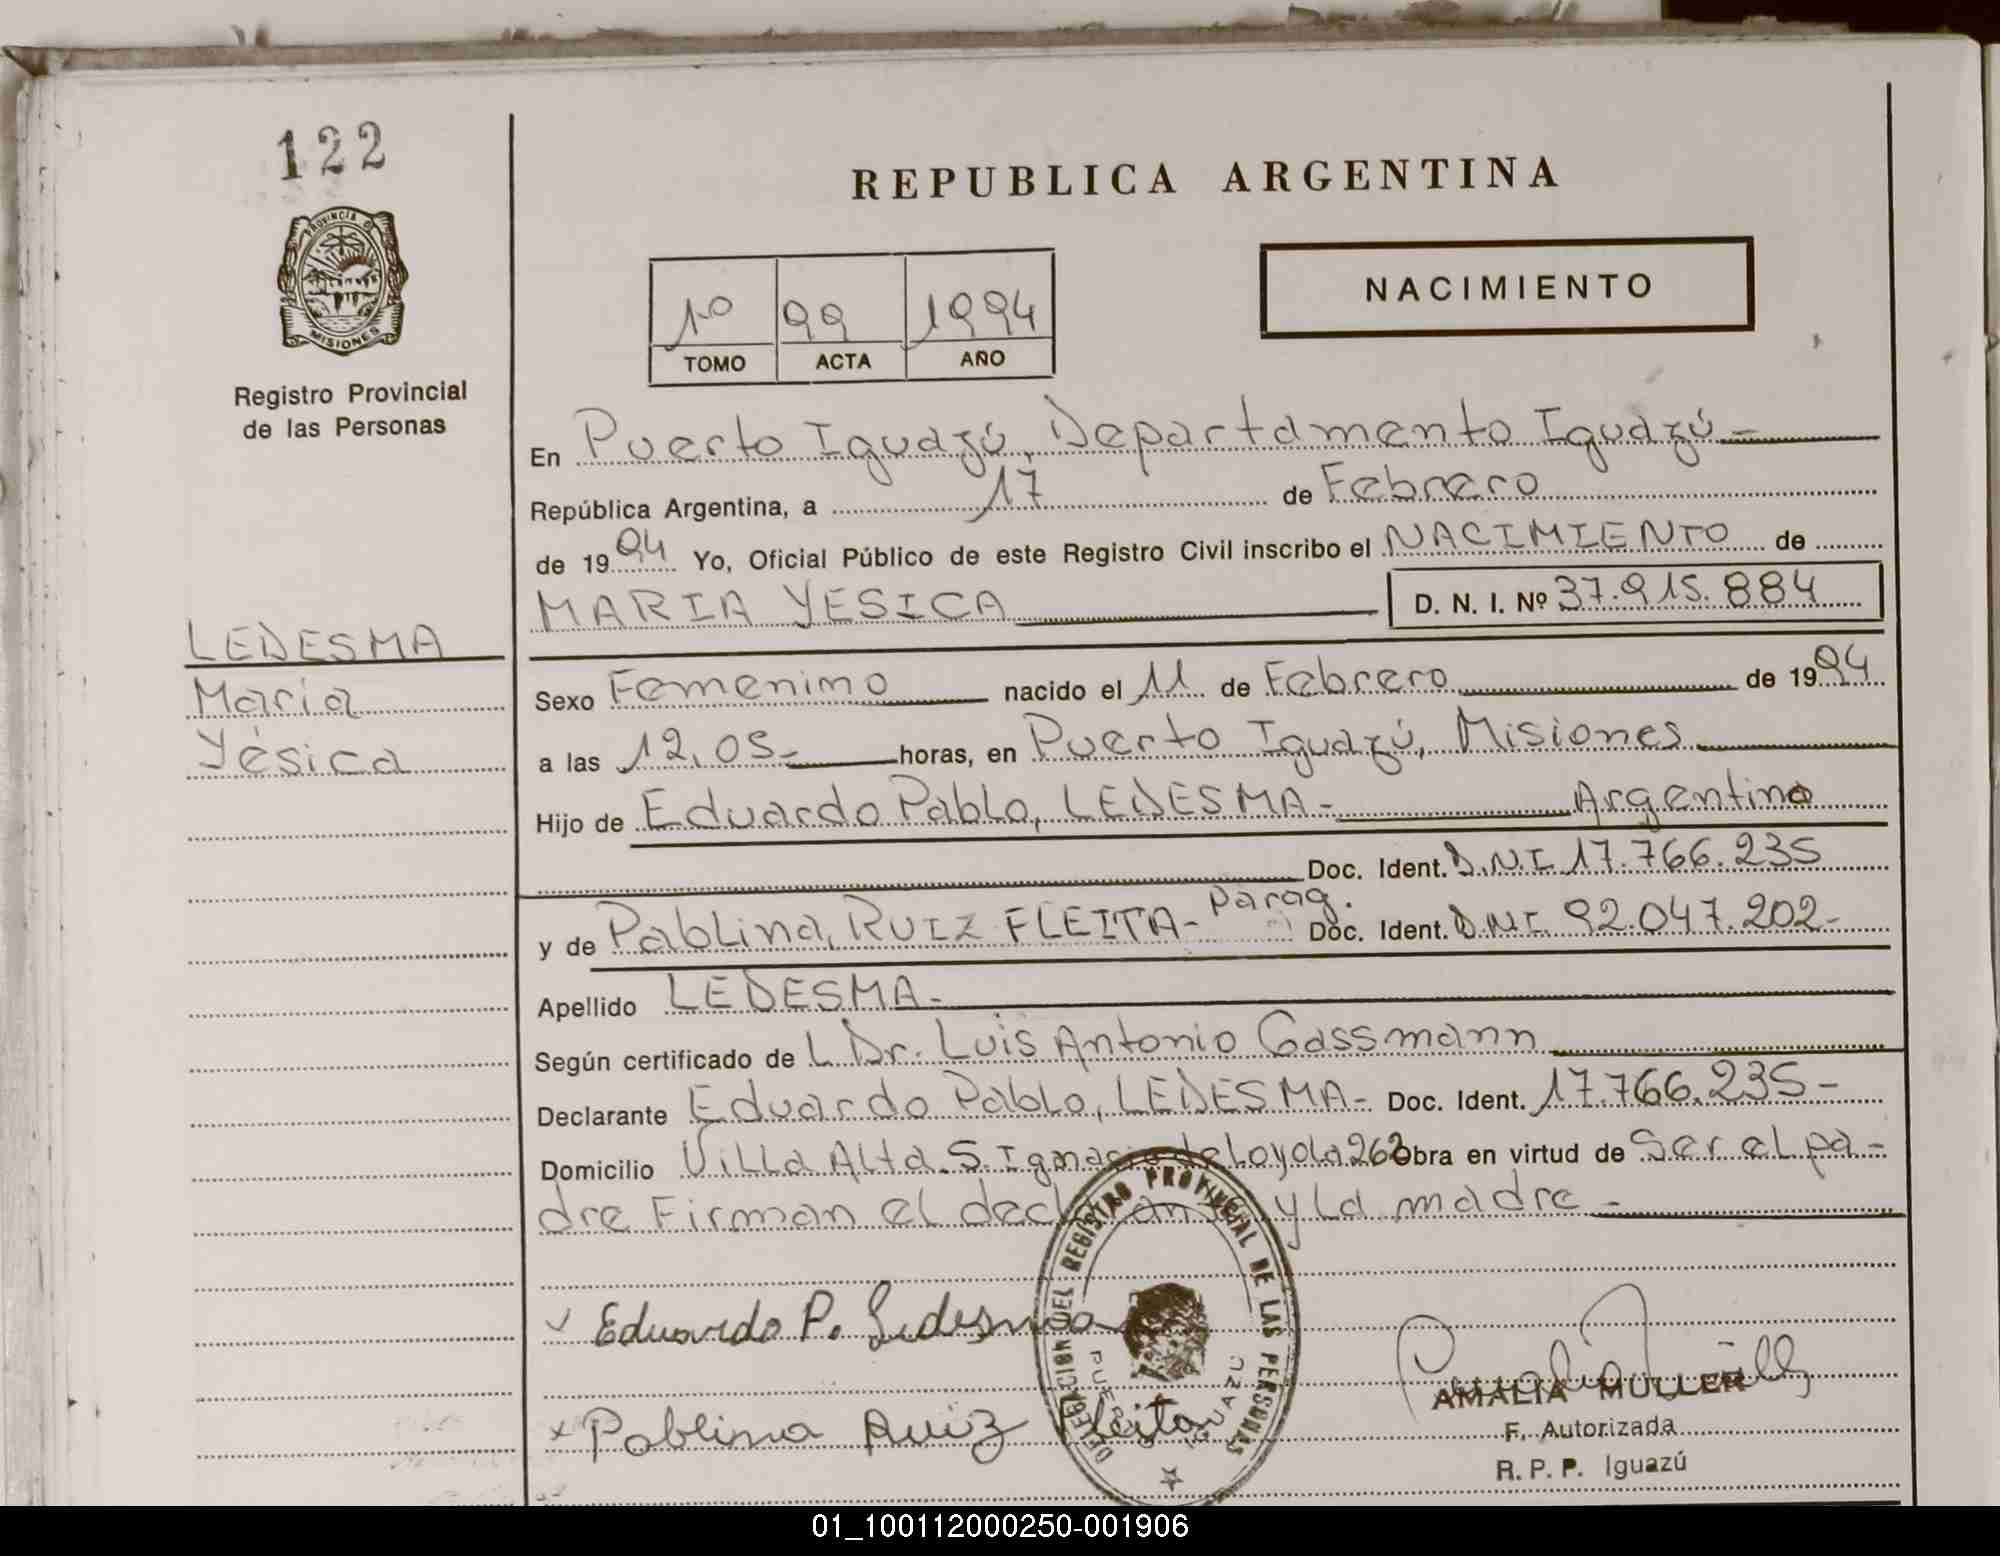 122
PROVINCIA DE
MISIONES
Registro Provincial
de las Personas
LEDESMA
Maria
Yésica
REPUBLICA ARGENTINA
NACIMIENTO
1º 99 1994
TOMO ACTA AÑO
En Puerto Iguazú, Departamento Iguazú-
República Argentina, a 17 de Febrero
de 1994 Yo, Oficial Público de este Registro Civil inscribo el NACIMIENTO de
MARIA YESICA D. N. I. Nº 37.915.884
Sexo Femenino nacido el 11 de Febrero de 1994
a las 12,05- horas, en Puerto Iguazú, Misiones
Hijo de Eduardo Pablo, LEDESMA- Argentino
Doc. Ident. D.N.I 17.766.235
y de Pablina, RUIZ FLEITA- Parag. Doc. Ident. D.N.I. 92.047.202-
Apellido LEDESMA-
Según certificado de L Dr. Luis Antonio Gassmann
Declarante Eduardo Pablo, LEDESMA- Doc. Ident. 17.766.235-
Domicilio Villa Alta. S. Ignacio de Loyola 262 obra en virtud de Ser el pa-
dre Firman el declarante y la madre-
Eduardo P. Ledesma
Pablina Ruiz Fleita
DELEGACION DEL REGISTRO PROVINCIAL DE LAS PERSONAS
PUERTO IGUAZU
AMALIA MULLER
F. Autorizada
R. P. P. Iguazú
01_100112000250-001906